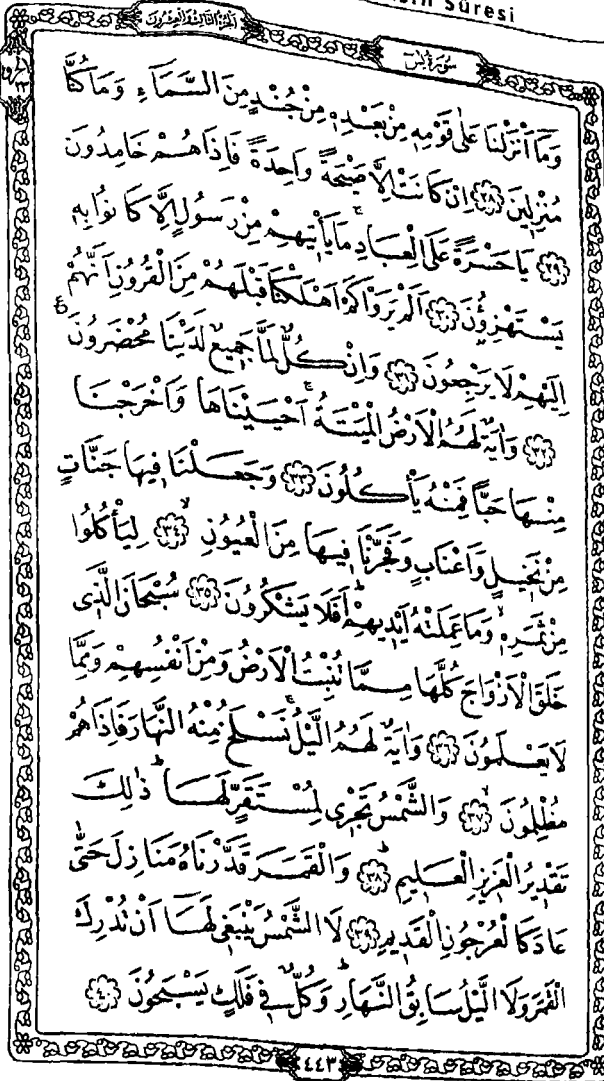 sin Sûresi
اَلْجُزْءُ الثَّالِثُ وَالْعِشْرُونَ
سُورَةُ يٰسٓ
وَمَٓا اَنْزَلْنَا عَلٰى قَوْمِه۪ مِنْ بَعْدِه۪ مِنْ جُنْدٍ مِنَ السَّمَٓاءِ وَمَا كُنَّا
مُنْزِل۪ينَ ﴿٢٨﴾ اِنْ كَانَتْ اِلَّا صَيْحَةً وَاحِدَةً فَاِذَا هُمْ خَامِدُونَ
﴿٢٩﴾ يَا حَسْرَةً عَلَى الْعِبَادِۚ مَا يَأْت۪يهِمْ مِنْ رَسُولٍ اِلَّا كَانُوا بِه۪
يَسْتَهْزِؤُ۫نَ ﴿٣٠﴾ اَلَمْ يَرَوْا كَمْ اَهْلَكْنَا قَبْلَهُمْ مِنَ الْقُرُونِ اَنَّهُمْ
اِلَيْهِمْ لَا يَرْجِعُونَ ﴿٣١﴾ وَاِنْ كُلٌّ لَمَّا جَم۪يعٌ لَدَيْنَا مُحْضَرُونَ ع
﴿٣٢﴾ وَاٰيَةٌ لَهُمُ الْاَرْضُ الْمَيْتَةُۚ اَحْيَيْنَاهَا وَاَخْرَجْنَا
مِنْهَا حَبًّا فَمِنْهُ يَأْكُلُونَ ﴿٣٣﴾ وَجَعَلْنَا ف۪يهَا جَنَّاتٍ
مِنْ نَخ۪يلٍ وَاَعْنَابٍ وَفَجَّرْنَا ف۪يهَا مِنَ الْعُيُونِۙ ﴿٣٤﴾ لِيَأْكُلُوا
مِنْ ثَمَرِه۪ۙ وَمَا عَمِلَتْهُ اَيْد۪يهِمْۜ اَفَلَا يَشْكُرُونَ ﴿٣٥﴾ سُبْحَانَ الَّذ۪ي
خَلَقَ الْاَزْوَاجَ كُلَّهَا مِمَّا تُنْبِتُ الْاَرْضُ وَمِنْ اَنْفُسِهِمْ وَمِمَّا
لَا يَعْلَمُونَ ﴿٣٦﴾ وَاٰيَةٌ لَهُمُ الَّيْلُۚ نَسْلَخُ مِنْهُ النَّهَارَ فَاِذَا هُمْ
مُظْلِمُونَۙ ﴿٣٧﴾ وَالشَّمْسُ تَجْر۪ي لِمُسْتَقَرٍّ لَهَاۜ ذٰلِكَ
تَقْد۪يرُ الْعَز۪يزِ الْعَل۪يمِۜ ﴿٣٨﴾ وَالْقَمَرَ قَدَّرْنَاهُ مَنَازِلَ حَتّٰى
عَادَ كَالْعُرْجُونِ الْقَد۪يمِ ﴿٣٩﴾ لَا الشَّمْسُ يَنْبَغ۪ي لَهَٓا اَنْ تُدْرِكَ
الْقَمَرَ وَلَا الَّيْلُ سَابِقُ النَّهَارِۜ وَكُلٌّ ف۪ي فَلَكٍ يَسْبَحُونَ ﴿٤٠﴾
٤٤٣